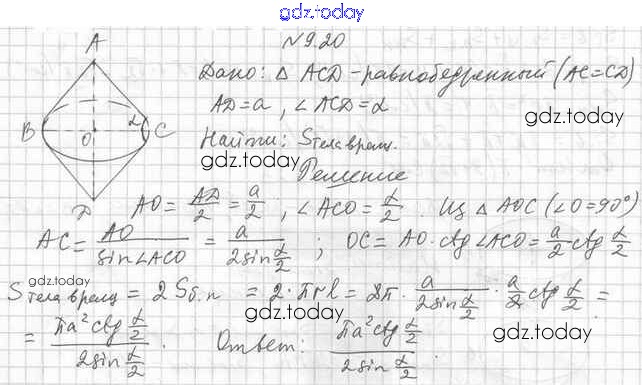 gdz.today
N 9.20
A
Дано: △ ACD - равнобедренный (AC=CD)
AD=a, ∠ACD=α
B O α C
gdz.today
Найти: Sтела вращ.
gdz.today
Решение
D
AO = AD/2 = a/2, ∠ACO = α/2. Из △ AOC (∠O=90°)
AC = AO/sin∠ACO = a/(2sin α/2); OC = AO·ctg∠ACO = a/2 ctg α/2
gdz.today
Sтела вращ = 2Sб.п = 2·πrl = 2π · a/(2sin α/2) · a/2 ctg α/2 =
= πa² ctg α/2 / (2sin α/2). Ответ: πa² ctg α/2 / (2sin α/2).
gdz.today
gdz.today